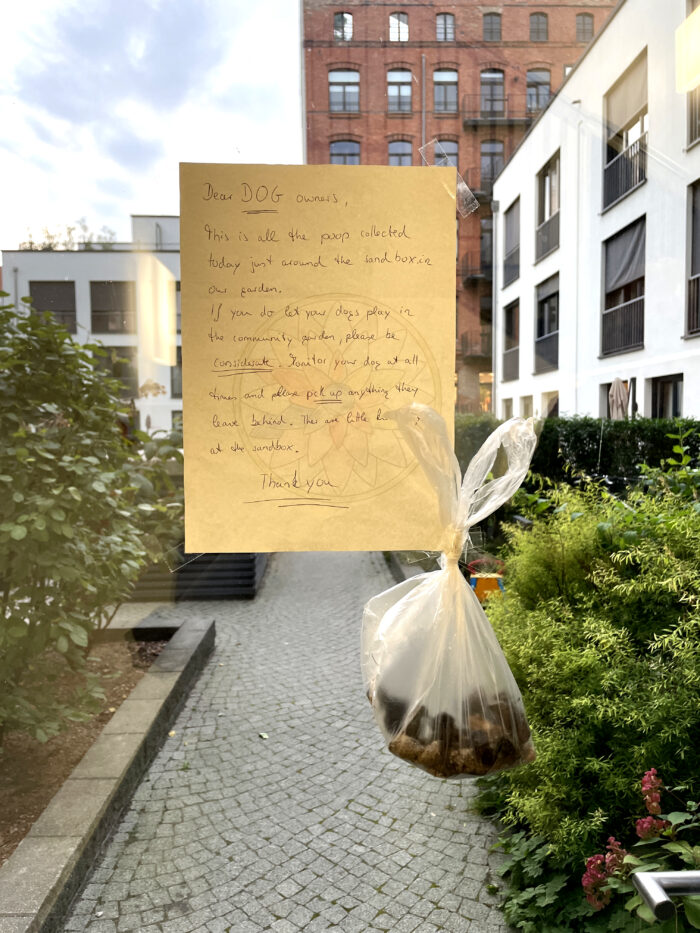 Dear DOG owners,
This is all the poop collected
today just around the sandbox in
our garden.
If you do let your dogs play in
the community garden, please be
considerate. Monitor your dog at all
times and please pick up anything they
leave behind. Ther are little
at the sandbox.
Thank you